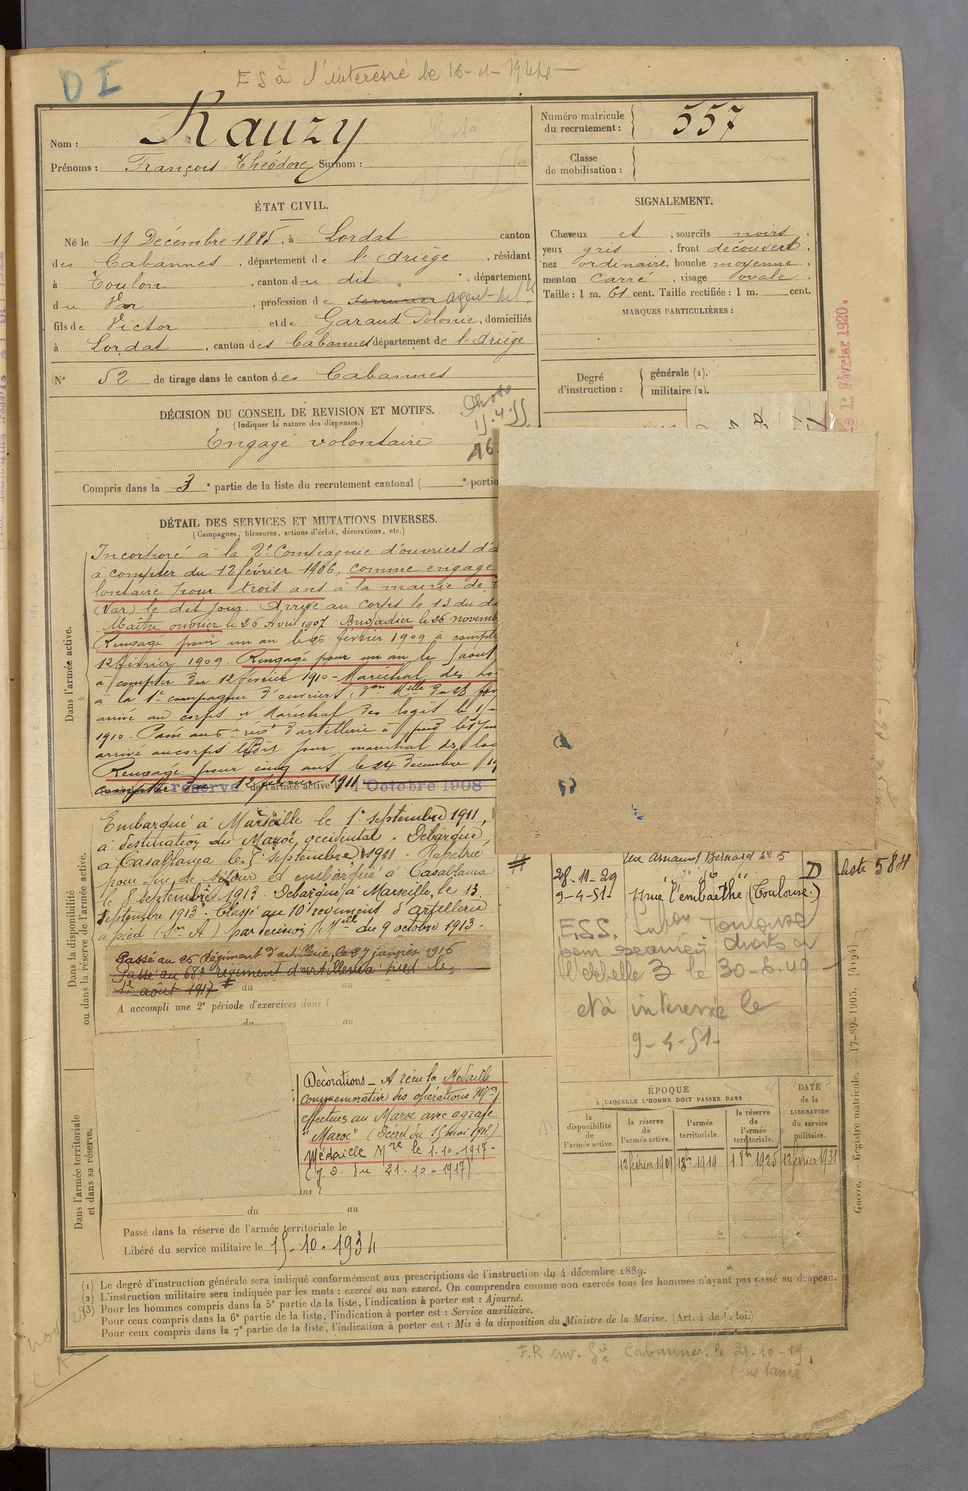 DI
ES à l'interessé le 16-
Nom : Rauzy
Prénoms : François Théodore Surnom :
Numéro matricule du recrutement : 557
Classe de mobilisation :
ÉTAT CIVIL.
Né le 19 Décembre 1885, à Lordat canton
des Cabannes, département de l'Ariège, résidant
à Toulon, canton du dit, département
du Var, profession de serrurier
fils de Victor et de Garaud Polonie, domiciliés
à Lordat, canton des Cabannes département de l'Ariège
N° 52 de tirage dans le canton des Cabannes
SIGNALEMENT.
Cheveux et, sourcils noirs.
yeux gris, front découvert.
nez ordinaire, bouche moyenne.
menton carré, visage ovale.
Taille : 1 m. 61 cent. Taille rectifiée : 1 m. cent.
MARQUES PARTICULIÈRES :
Degré d'instruction : générale (1). militaire (2).
DÉCISION DU CONSEIL DE REVISION ET MOTIFS.
(Indiquer la nature des dispenses.)
Engagé volontaire
Compris dans la 3e partie de la liste du recrutement cantonal ( e portio
DÉTAIL DES SERVICES ET MUTATIONS DIVERSES.
(Campagnes, blessures, actions d'éclat, décorations, etc.)
Dans l'armée active.
Incorporé à la 2e Compagnie d'ouvriers d'a
à compter du 12 février 1906, comme engagé
lontaire pour trois ans à la mairie de
(Var) le dit jour. Arrivé au corps le 13 du d
Maître ouvrier le 26 Avril 1907 Brigadier le 26 novemb
Rengagé pour un an le 26 février 1909 à compte
12 février 1909. Rengagé pour un an le août
à compter du 12 février 1910 - Maréchal des lo
à la 1e compagnie d'ouvriers,
arrivé au corps et Maréchal des logis le 1
1910. Passé au d'artillerie à pied le
arrivé au corps le dit jour marechal des log
Rengagé pour cinq ans le 24 Decembre 19
compter du 12 février 1911
réserve de l'armée active 1 Octobre 1908
Dans la disponibilité ou dans la réserve de l'armée active.
Embarqué à Marseille le 1e septembre 1911,
à destination du Maroc occidental. Débarqué
à Casablanca le 5 septembre 1911. Rapatrié
pour fin de séjour et embarqué à Casablanca
le 8 septembre 1913. Débarqué à Marseille, le 13
septembre 1913. Classé au 10e régiment d'artillerie
à pied par décision Mlle du 9 octobre 1913.
Passé au 26 Régiment d'artillerie, le 27 janvier 1916
Passé au 68e régiment d'artillerie à pied le
1er août 1917 #
du au
A accompli une 2e période d'exercices dans l
du au
Dans l'armée territoriale et dans sa réserve.
Décorations - A reçu la Médaille
commémorative des opérations Mres
effectuées au Maroc avec agrafe
"Maroc" (Décret du 15 mai 1912)
Médaille Mre le 1-10-1917-
(J.O. du 21-10-1917)
du au
Passé dans la réserve de l'armée territoriale le
Libéré du service militaire le 15-10-1934
#
rue Arnaud Bernard No 5
28-11-29
9-4-51- rue Lembarthe (Toulouse) D liste 584
E.S.S. Toulouse
pour examen droits à
Vielle 3 le 30-6-49
et à interessé le
9-4-51-
ÉPOQUE
À LAQUELLE L'HOMME DOIT PASSER DANS
la disponibilité de l'armée active.
la réserve de l'armée active.
l'armée territoriale.
la réserve de l'armée territoriale.
DATE de la LIBÉRATION du service militaire.
12 février 1909 1919 1925 12 février 1931
DU 1er Février 1920.
Guerre. Registre matricule. 17-89-1905. [4194]
(1) Le degré d'instruction générale sera indiqué conformément aux prescriptions de l'instruction du 4 décembre 1889.
(2) L'instruction militaire sera indiquée par les mots : exercé ou non exercé. On comprendra comme non exercés tous les hommes n'ayant pas passé au drapeau.
(3) Pour les hommes compris dans la 5e partie de la liste, l'indication à porter est : Ajourné.
Pour ceux compris dans la 6e partie de la liste, l'indication à porter est : Service auxiliaire.
Pour ceux compris dans la 7e partie de la liste, l'indication à porter est : Mis à la disposition du Ministre de la Marine. (Art. 4 de la loi.)
F.R env. Gie Cabannes. le 21-10-19